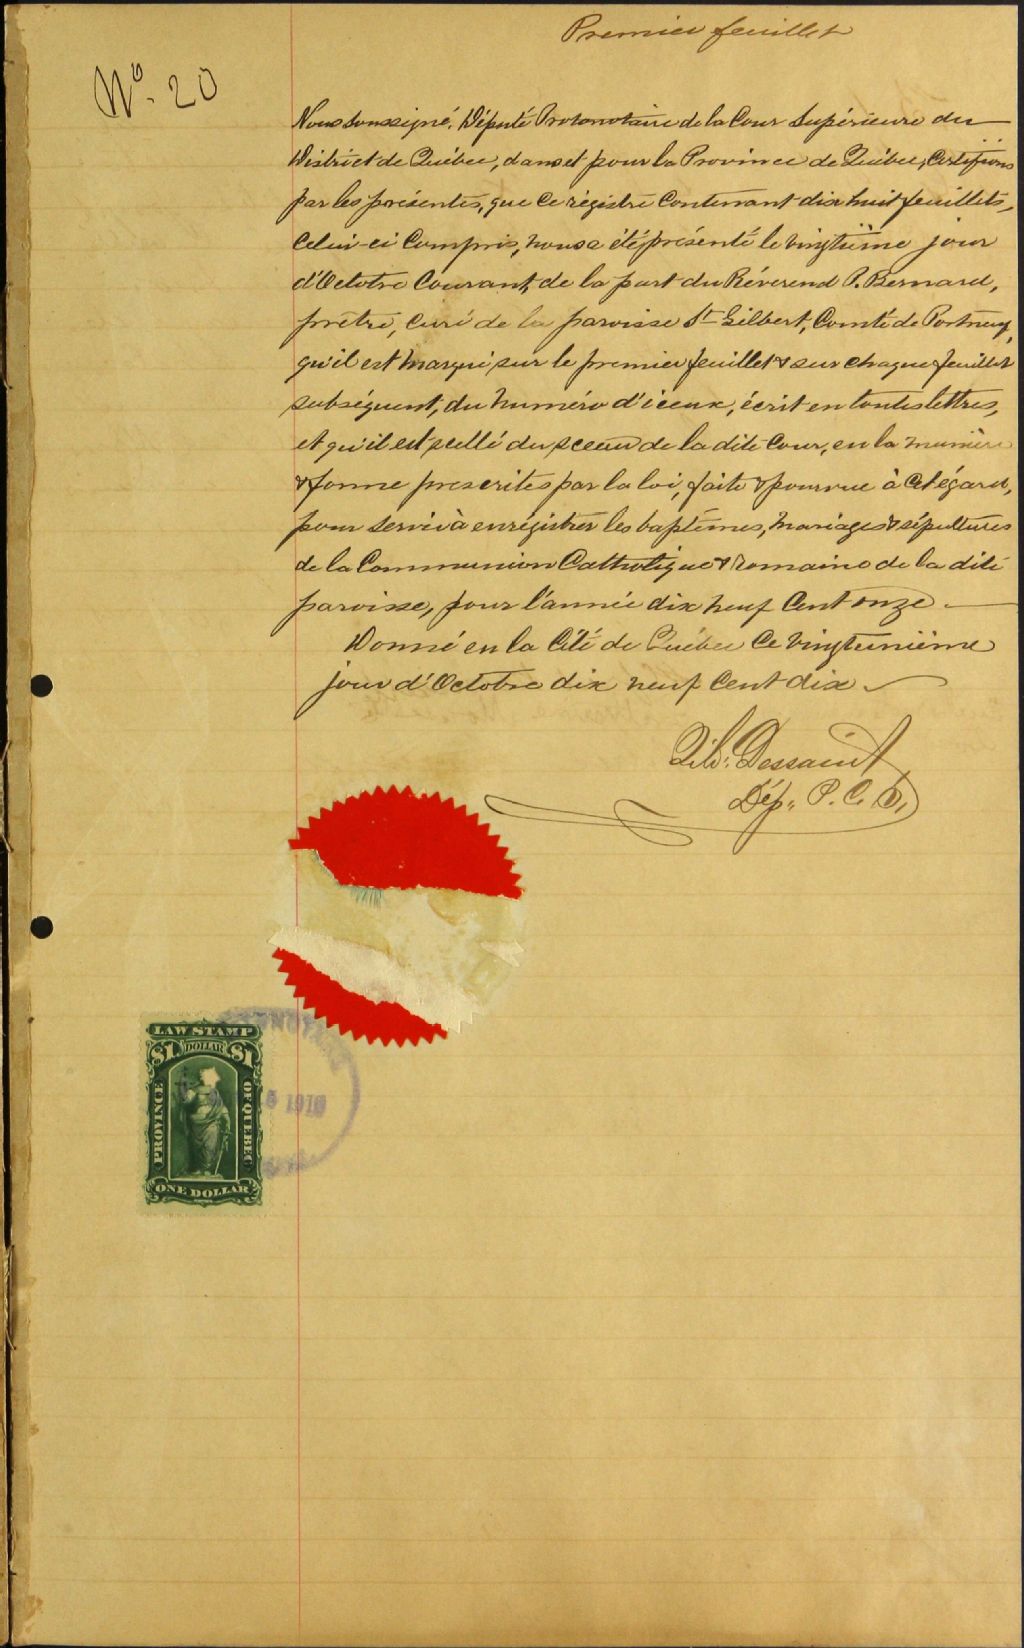 Premier feuillet
No. 20
Nous soussigné, Député Protonotaire de la Cour Supérieure du
District de Québec, dans et pour la Province de Québec, Certifions
par les présentes, que ce régistre contenant dix huit feuillets,
celui-ci compris, nous a été présenté le vingtième jour
d'Octobre Courant, de la part du Révérend P. Bernard,
prêtre, curé de la paroisse St Gilbert, Comté de Portneuf,
qu'il est marqué sur le premier feuillet & sur chaque feuillet
subséquent, du numéro d'iceux, écrit en toutes lettres,
et qu'il est scellé du sceau de la dite Cour, en la manière
& forme prescrites par la loi, faite & pourvue à cet égard,
pour servir à enrégistrer les baptêmes, mariages & sépultures
de la Communion Catholique & romaine de la dite
paroisse, pour l'année dix neuf Cent onze.
Donné en la Cité de Québec ce vingtunième
jour d'Octobre dix neuf Cent dix
Dessaint
Dép. P. C. S.
LAW STAMP
$1 DOLLAR $1
PROVINCE OF QUEBEC
5 1910
ONE DOLLAR